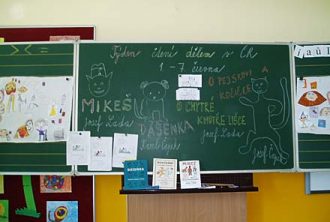 Týden čtení dětem v ČR
1. - 7. června
MIKEŠ
Josef Lada
DÁŠENKA
Karel Čapek
O CHYTRÉ
KMOTŘE LIŠCE
Josef Lada
O PEJSKOVI A
KOČIČCE
Josef Čapek
DÁŠENKA
MIKEŠ